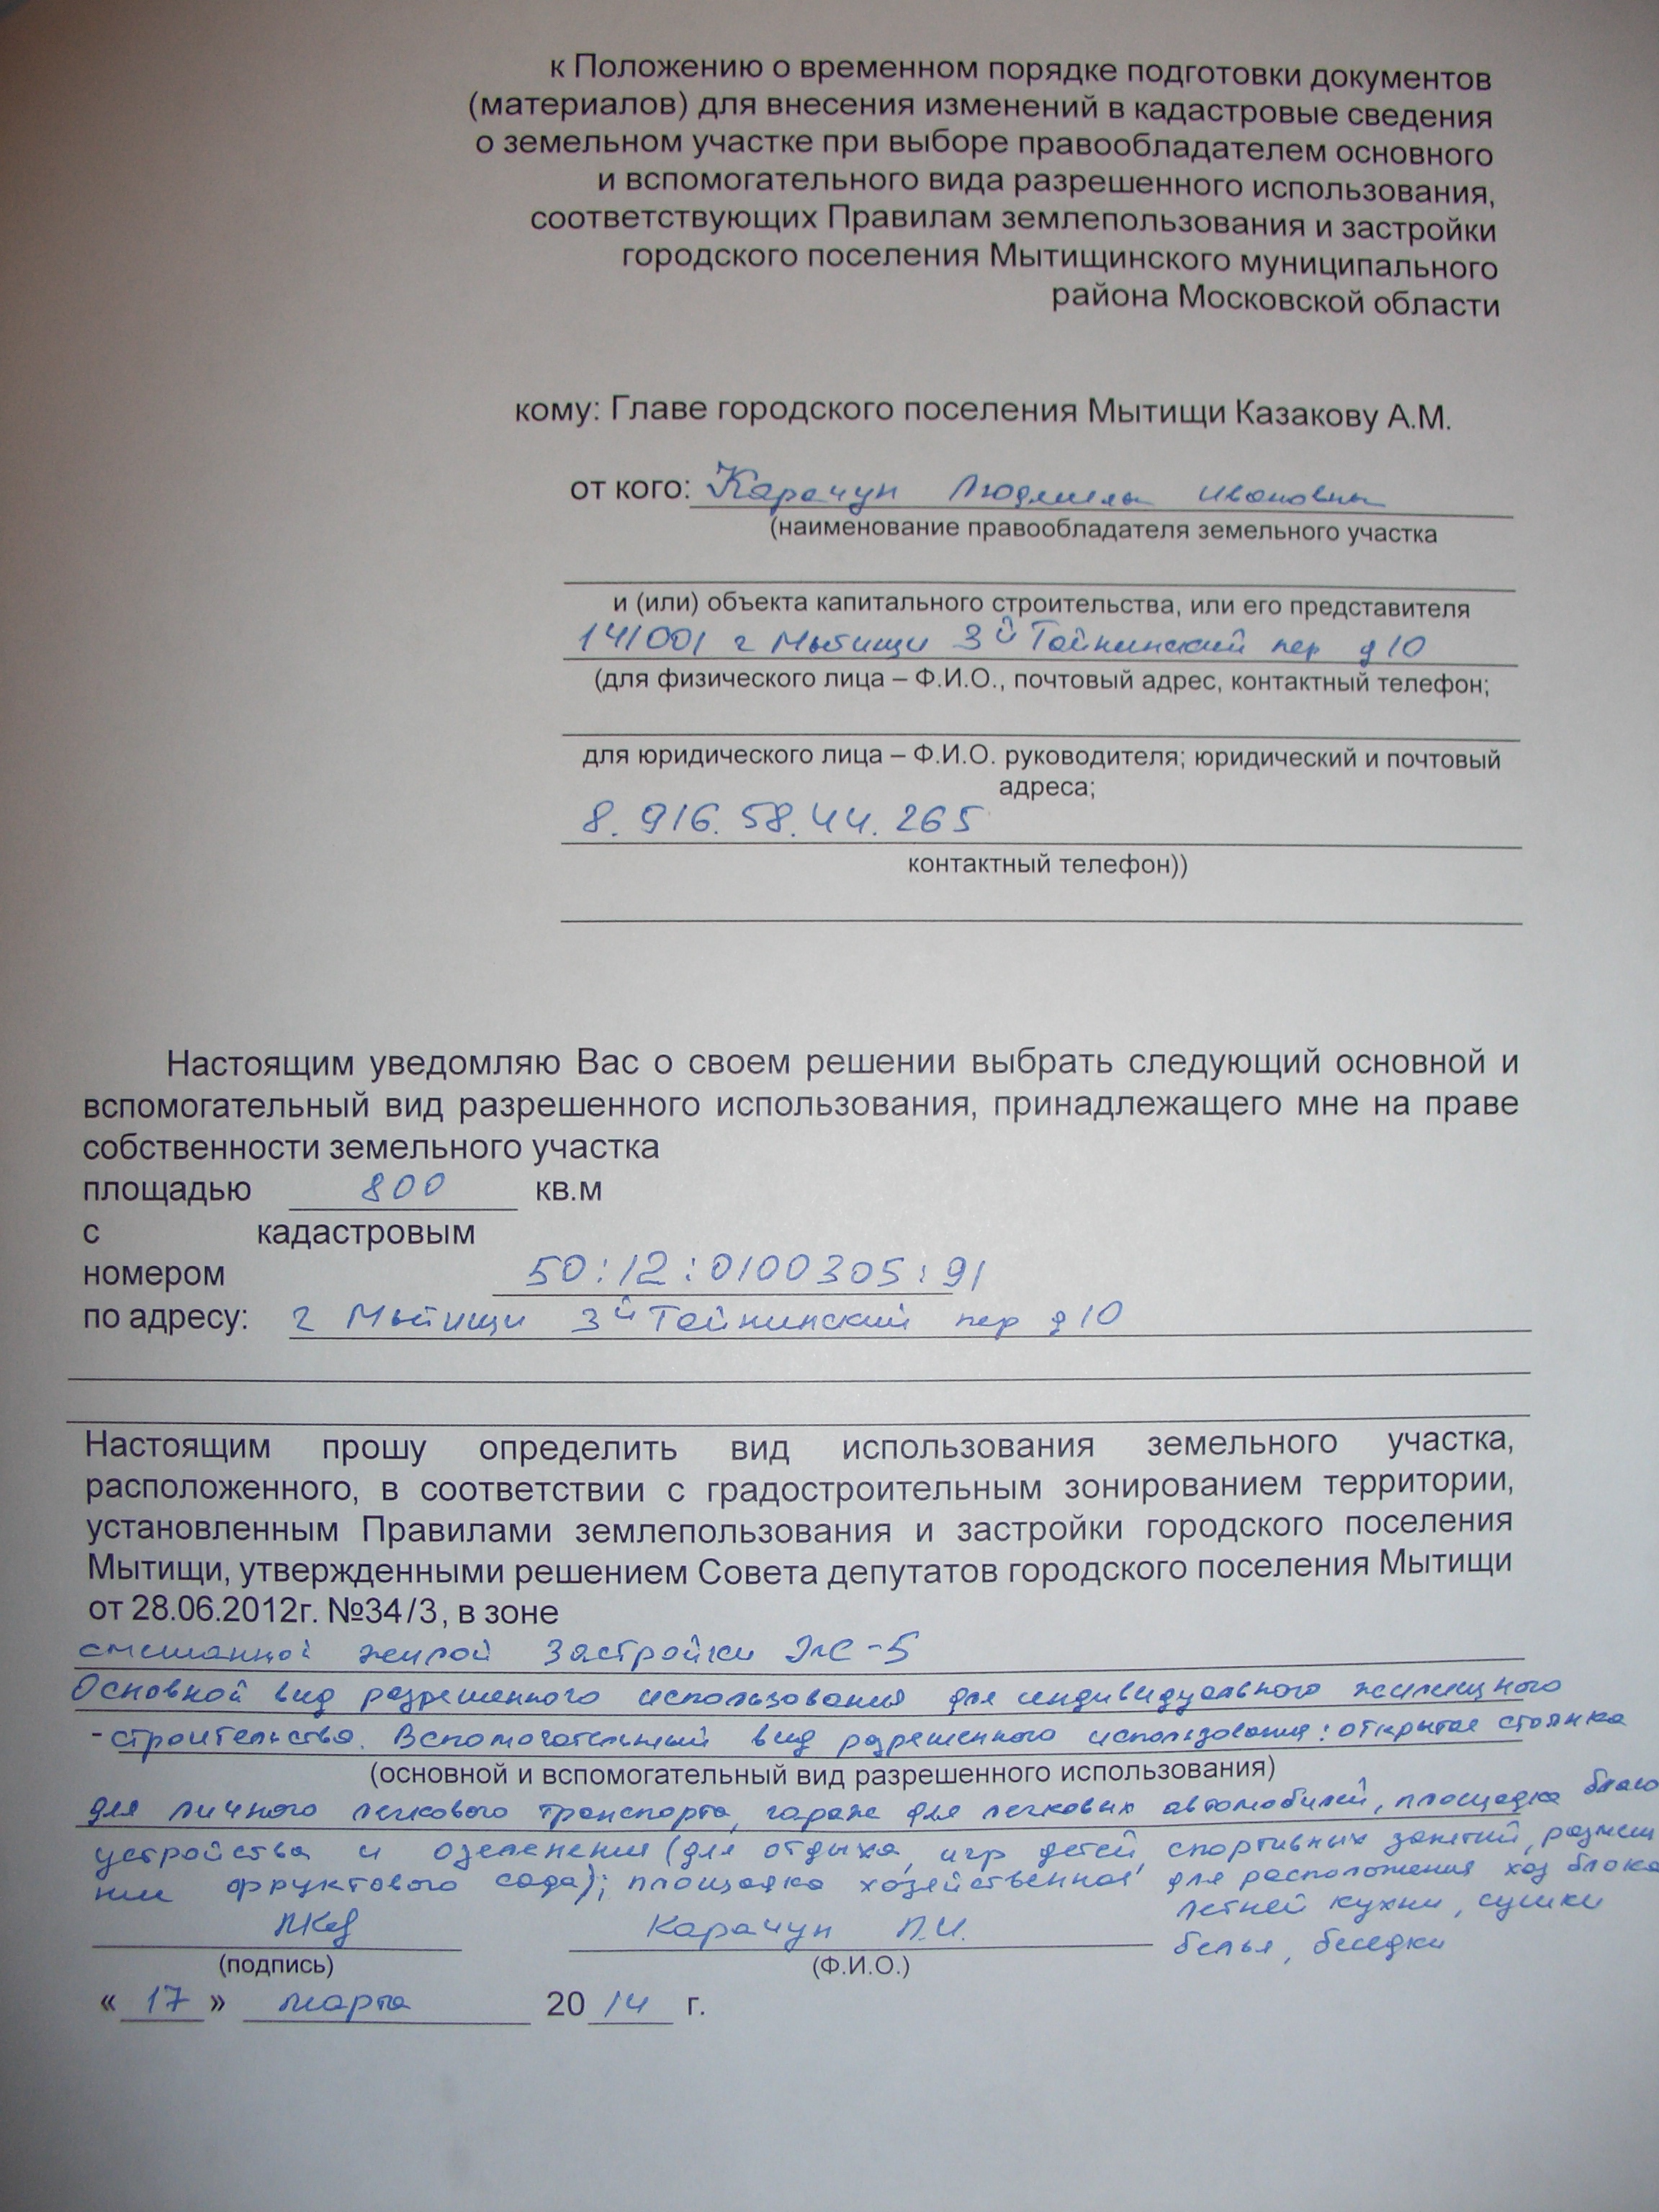 к Положению о временном порядке подготовки документов
(материалов) для внесения изменений в кадастровые сведения
о земельном участке при выборе правообладателем основного
и вспомогательного вида разрешенного использования,
соответствующих Правилам землепользования и застройки
городского поселения Мытищинского муниципального
района Московской области
кому: Главе городского поселения Мытищи Казакову А.М.
от кого: Карачун Людмилы Ивановны
(наименование правообладателя земельного участка
и (или) объекта капитального строительства, или его представителя
141001 г Мытищи 3й Тайнинский пер д 10
(для физического лица – Ф.И.О., почтовый адрес, контактный телефон;
для юридического лица – Ф.И.О. руководителя; юридический и почтовый
адреса;
8. 916. 58. 44. 265
контактный телефон))
Настоящим уведомляю Вас о своем решении выбрать следующий основной и
вспомогательный вид разрешенного использования, принадлежащего мне на праве
собственности земельного участка
площадью 800 кв.м
с кадастровым
номером 50:12:0100305:91
по адресу: г Мытищи 3й Тайнинский пер д 10
Настоящим прошу определить вид использования земельного участка,
расположенного, в соответствии с градостроительным зонированием территории,
установленным Правилами землепользования и застройки городского поселения
Мытищи, утвержденными решением Совета депутатов городского поселения Мытищи
от 28.06.2012г. №34/3, в зоне
смешанной жилой застройки ЖС-5
Основной вид разрешенного использования для индивидуального жилищного
-строительства. Вспомогательный вид разрешенного использования: открытая стоянка
(основной и вспомогательный вид разрешенного использования)
для личного легкового транспорта, гараж для легковых автомобилей, площадка благо
устройства и озеленения (для отдыха, игр детей, спортивных занятий, размещ
ния фруктового сада); площадка хозяйственная для расположения хоз блока
летней кухни, сушки
белья, беседки
Карачун Л.И.
(подпись) (Ф.И.О.)
« 17 » марта 20 14 г.